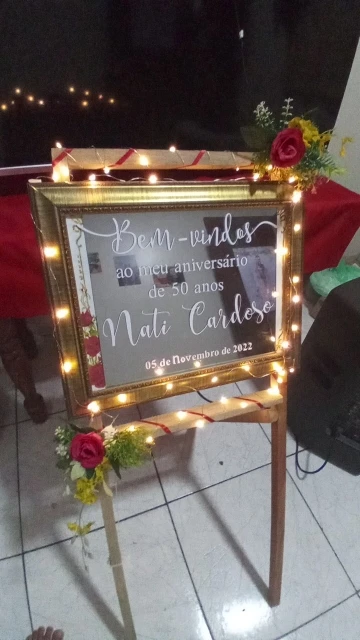 Bem-vindos
ao meu aniversário
de 50 anos
Nati Cardoso
05 de Novembro de 2022